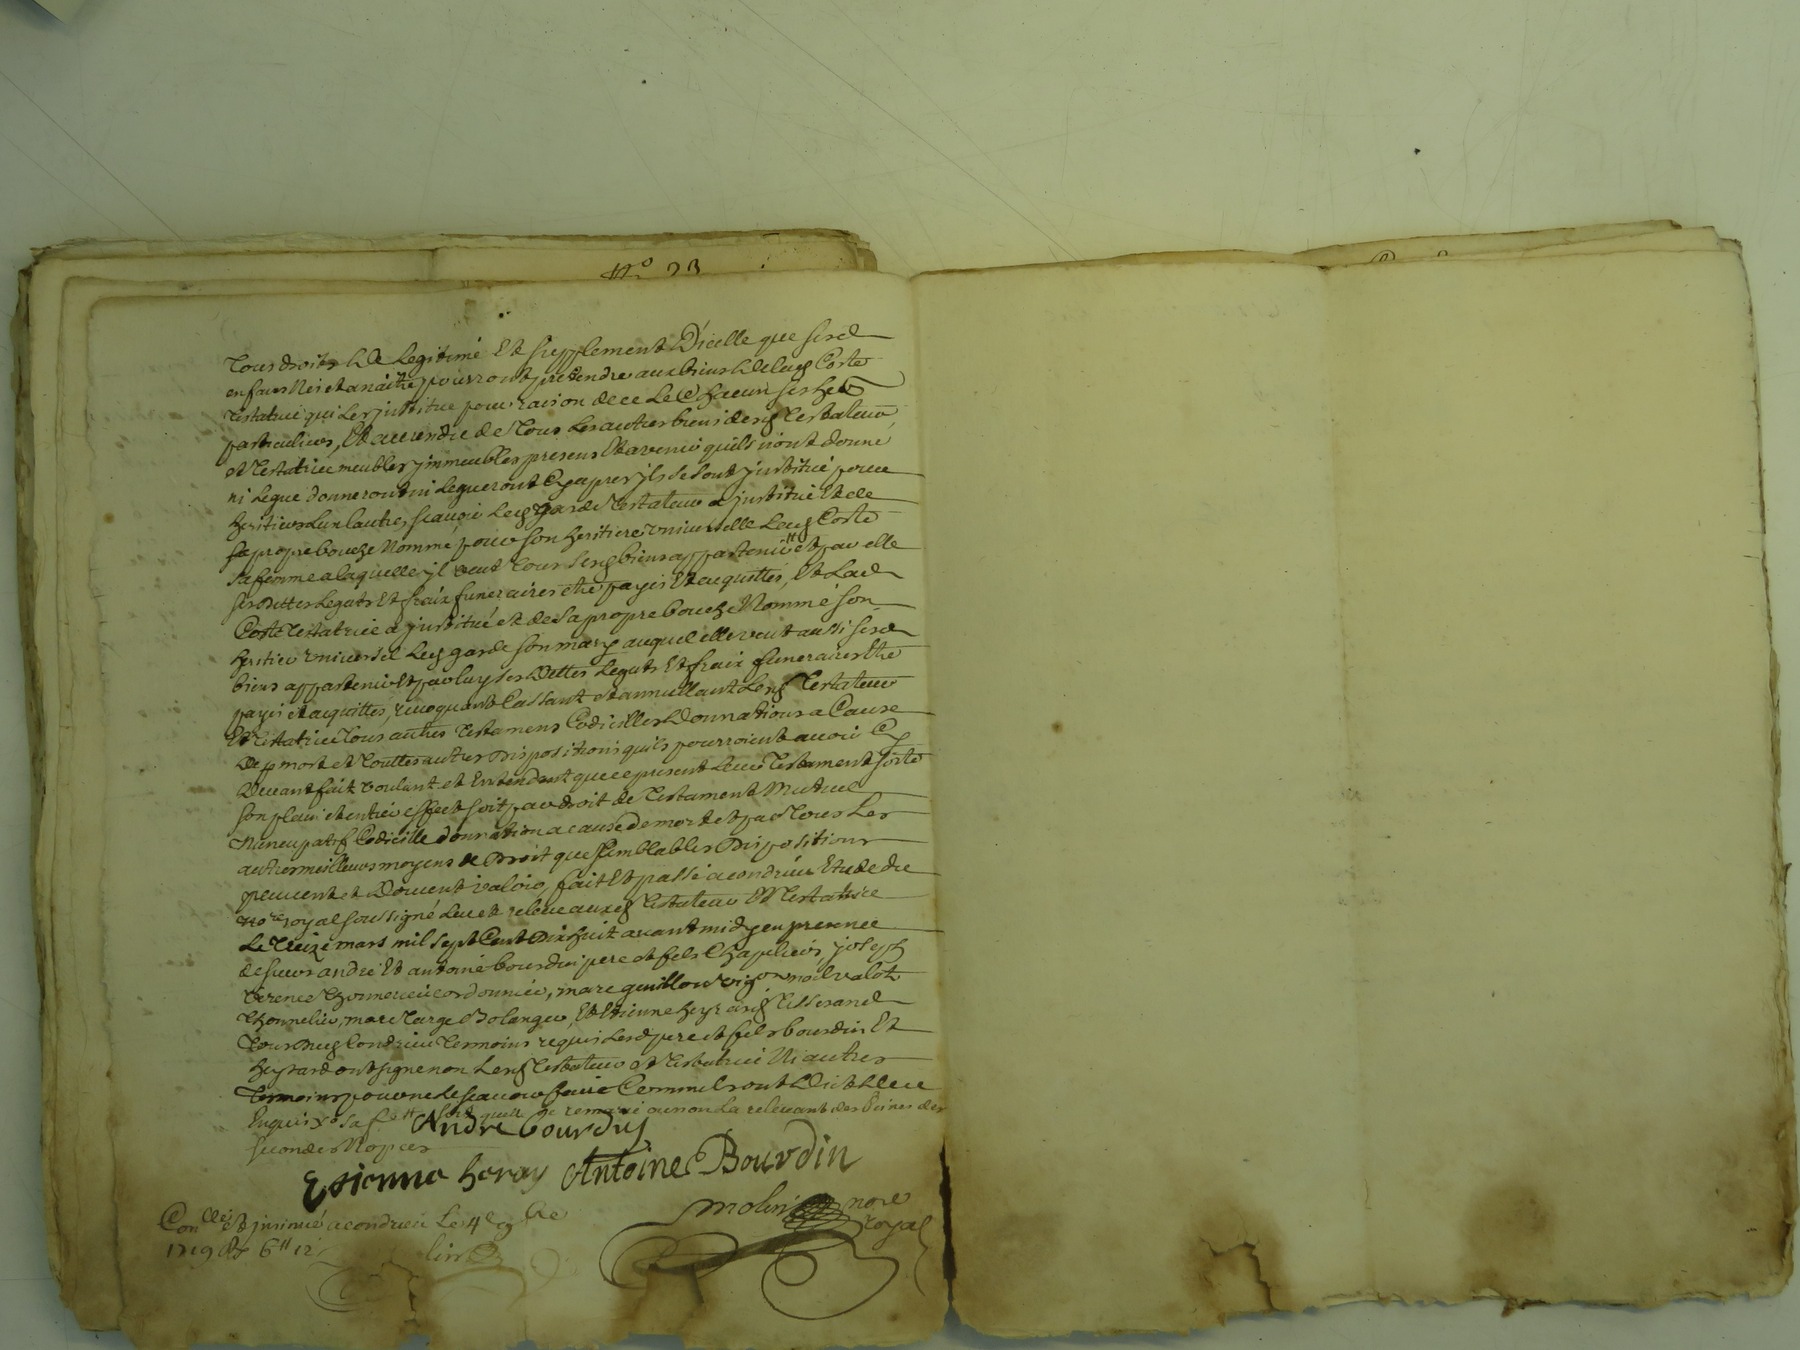 No 23
Tous droits de Legitime Et supplement D'icelle que sesd
enfans Nés et anaitre pourront pretendre aux biens de lad Coste
Testatrice qui Les institue pour raison de ce Le Chacun ses her
particuliers, Et au residu de Tous Les autres biens desd Testateur
et Testatrice meubles immeubles presens Et avenir quils n'ont donné
ni Legué donneront ni Legueront Cy apres ils se sont institué pour
heritiers Lun lautre, scavoir Led garde Testateur a institué Et de
sa propre bouche Nommé pour son heritiere universelle Lad Coste
sa femme a laquelle il veut Tous sesd biens appartenir et par elle
ses dettes Legats Et fraix funeraires être payés Et acquittés, Et Lad
Coste Testatrice a institué et de sa propre bouche Nommé son
heritier universel Led garde son mary auquel elle veut aussi sesd
biens appartenir Et par luy ses Dettes Legats Et fraix funeraires être
payés et acquittés, revoquant Cassant et annullant Lesd Testateur
Et Testatrice Tous autres Testamens Codicilles Donnations a Cause
De mort et Touttes autres Dispositions quils pourroient avoir Cy
Devant fait voulant et Entendant que ce present Leur Testament sorte
son plein et entier effect soit par droit de Testament Mutuel
Nuncupatif Codicille donnation a cause de mort et par Tous Les
autres meilleurs moyens de Droit que semblables Dispositions
peuvent et Doivent valoir, fait Et passé a condrieu Etude du
nore royal soussigné Leu et releu auxd Testateur Et Testatrice
Le Treize mars mil sept Cent Dix huit avant midy en presence
de sieurs andré Et antoine bourdin pere et fils Chapeliers, joseph
Terence cordonnier, marc guillon vigon noel valot
Thonnelier, marc Targe Bolanger, Et Etienne heyrard Tisserand
Tous dud Condrieu Temoins requis Lesd pere et fils bourdin Et
heyrard ont signé non Lesd Testateur et Testatrice Ni autres
Temoins pour ne le scavoir faire Comme ils ont Dict de ce
Enquis se remarie ou non La relevant des Peines des
secondes Nopces
André bourdin
Etienne heray Antoine Bourdin
molin nore
royal
Conllé et insinué a condrieu Le 4e 9bre
1719 6tt 12